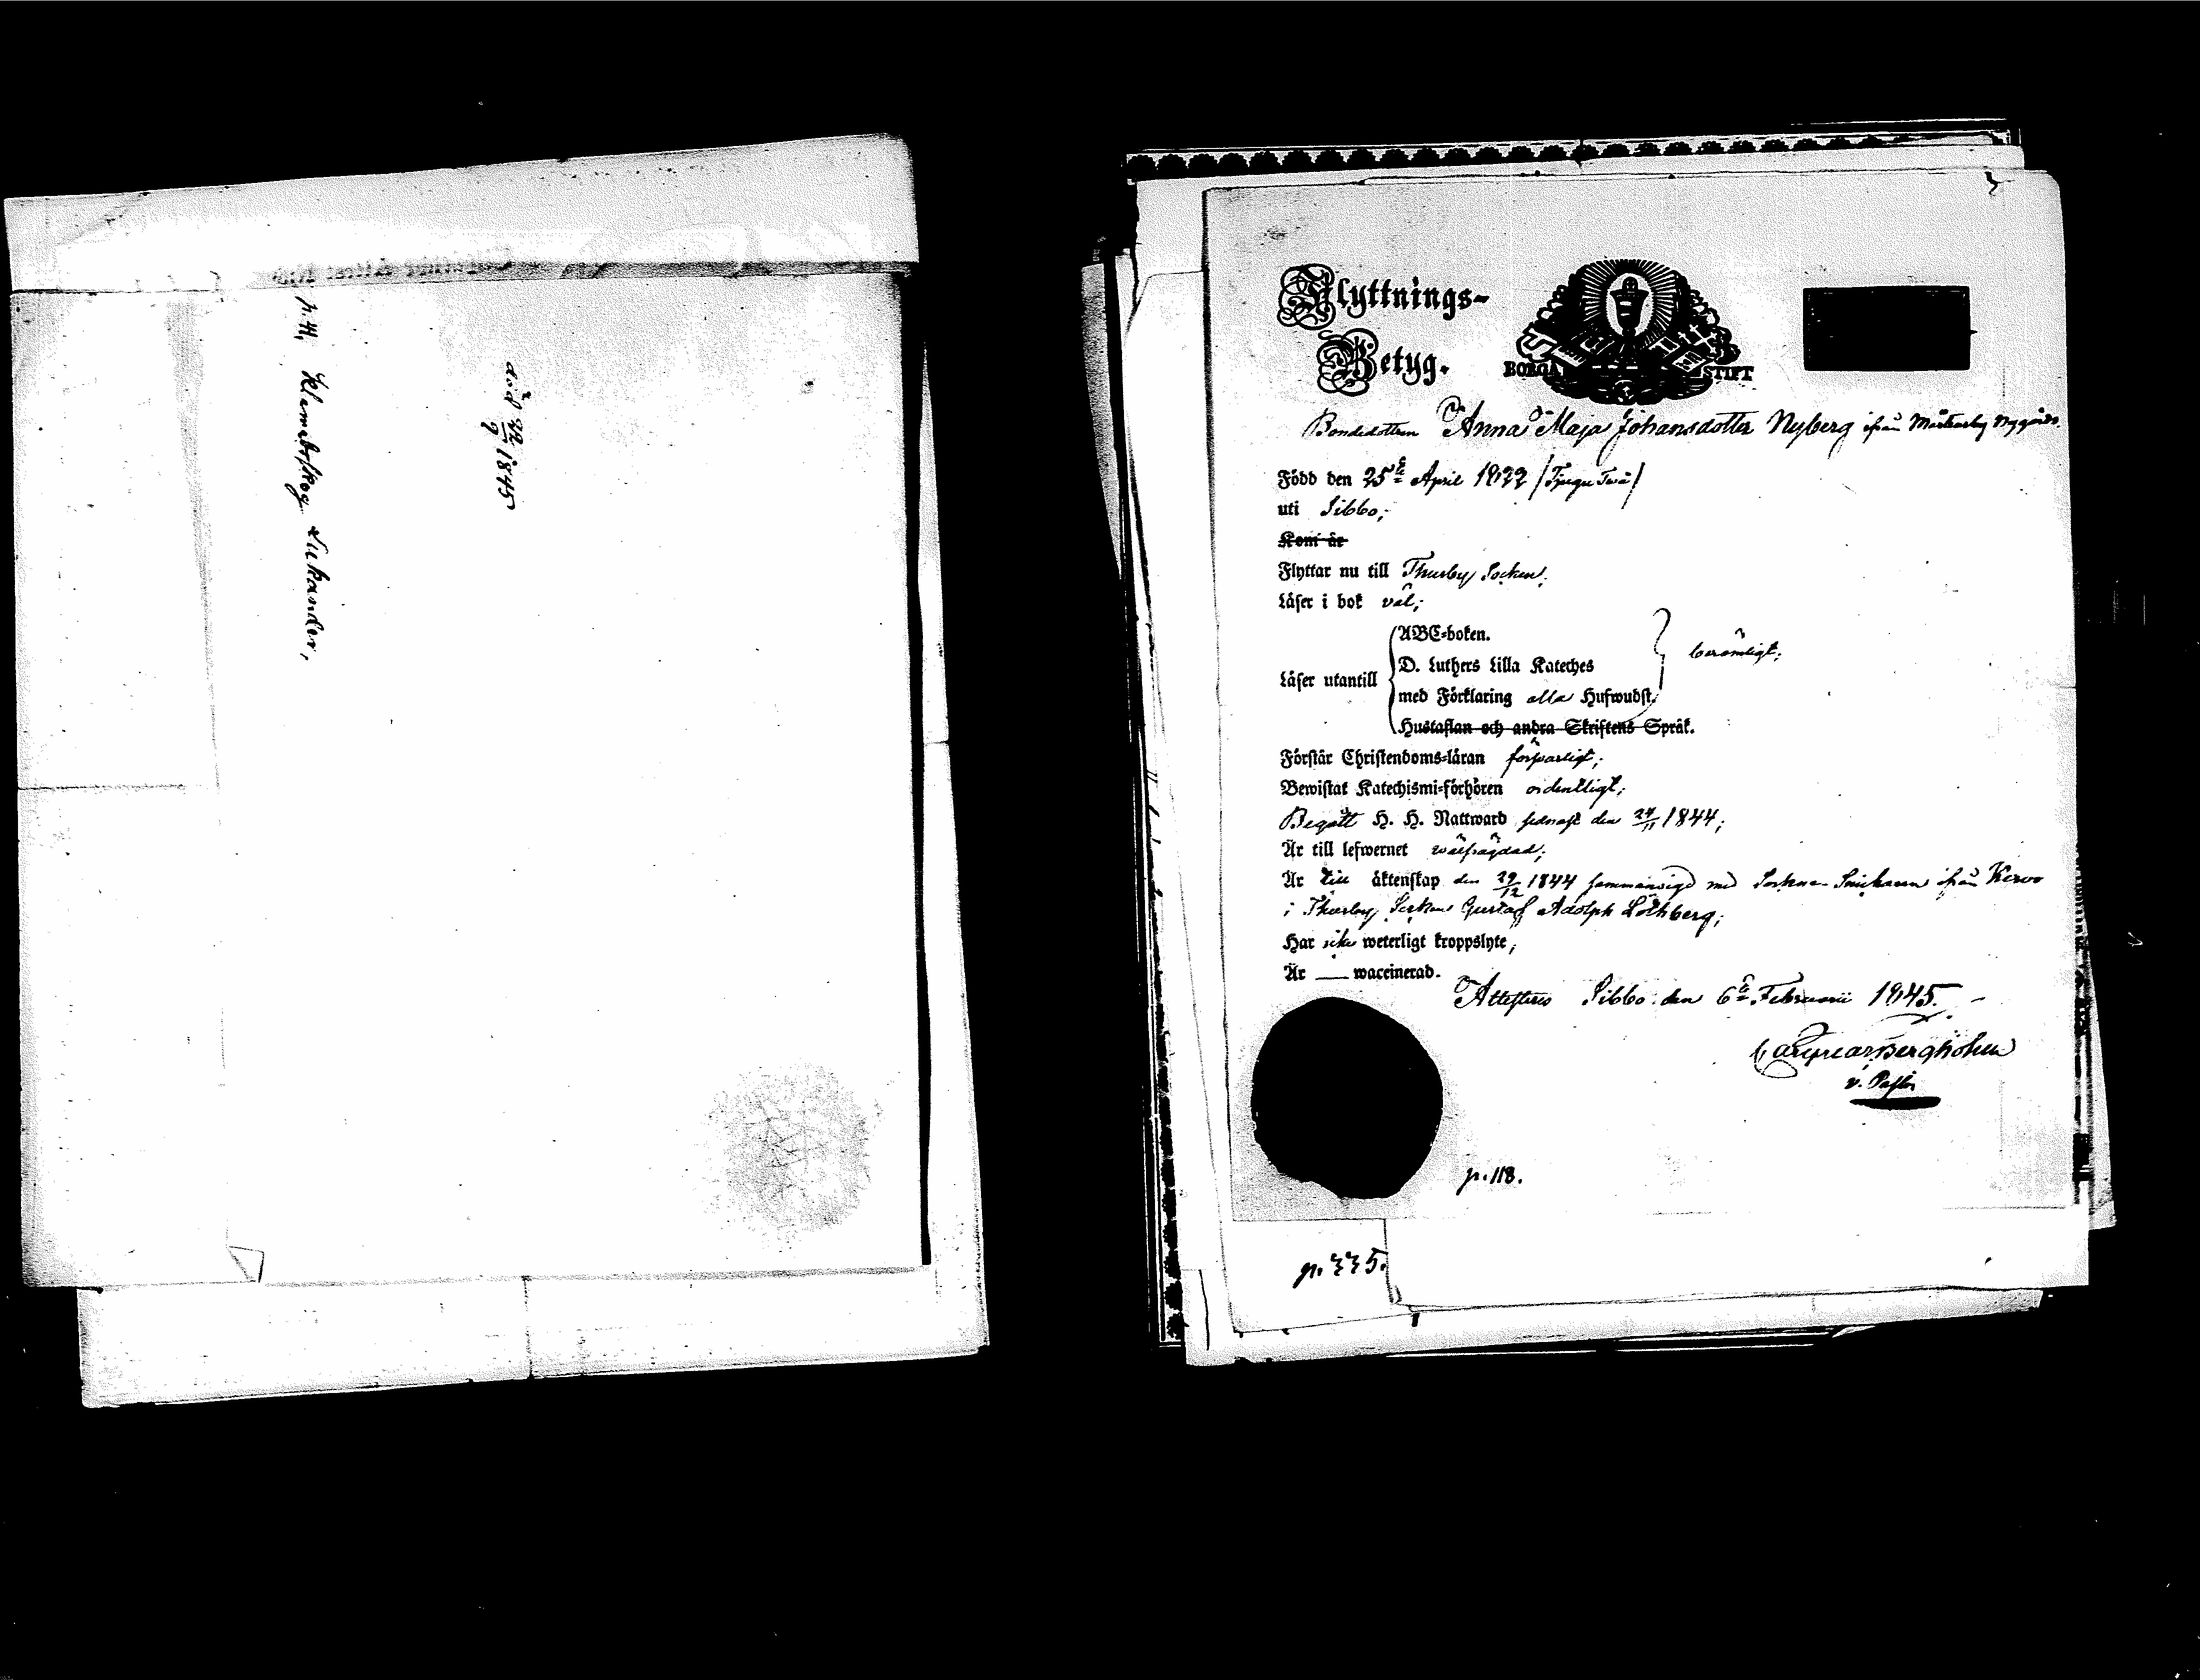 p. 41, Klemetsskog Sukander,
död 22/9 1845
Flyttnings-
Betyg.
BORGÅ STIFT
Bondedottern Anna Maja Johansdotter Nyberg ifrån Mårtensby Nygårds
Född den 25te April 1822 /Tjugu Två/
uti Sibbo;
Kom år
Flyttar nu till Thusby Socken;
Läser i bok väl;
Läser utantill
ABC-boken.
D. Luthers Lilla Kateches
med Förklaring alla Hufwudst.
Hustaflan och andra Skriftens Språk.
berömligt;
Förstår Christendoms-läran försvarligt;
Bewistat Katechismi-förhören ordentligt;
Begått H. H. Nattward sednast den 24/11 1844;
Är till lefwernet wälfrägdad;
Är till äktenskap den 29/12 1844 sammanvigd med Sockne ifrån Kervo
i Thusby Socken Gustaf Adolph Löthberg;
Har icke weterligt kroppslyte;
Är — waccinerad.
Attesteras Sibbo den 6te Februarii 1845.
v. Pastor
p. 118.
p. 335.